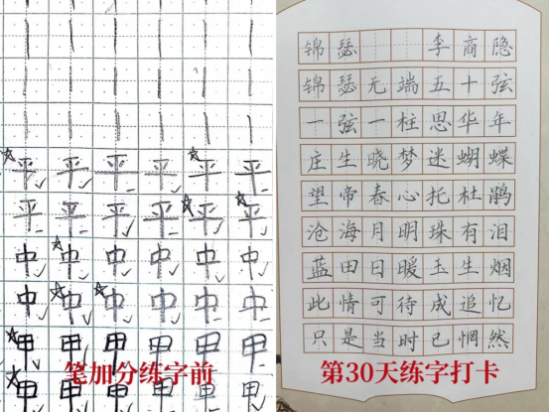 平 平 平 平 平 平
平 平 平 平 平 平
中 中 中 中 中 中
中 中 中 中 中 中
甲 甲 甲 甲 甲 甲
甲 甲 甲 甲 甲 甲
笔加分练字前
锦瑟 李商隐
锦瑟无端五十弦
一弦一柱思华年
庄生晓梦迷蝴蝶
望帝春心托杜鹃
沧海月明珠有泪
蓝田日暖玉生烟
此情可待成追忆
只是当时已惘然
第30天练字打卡